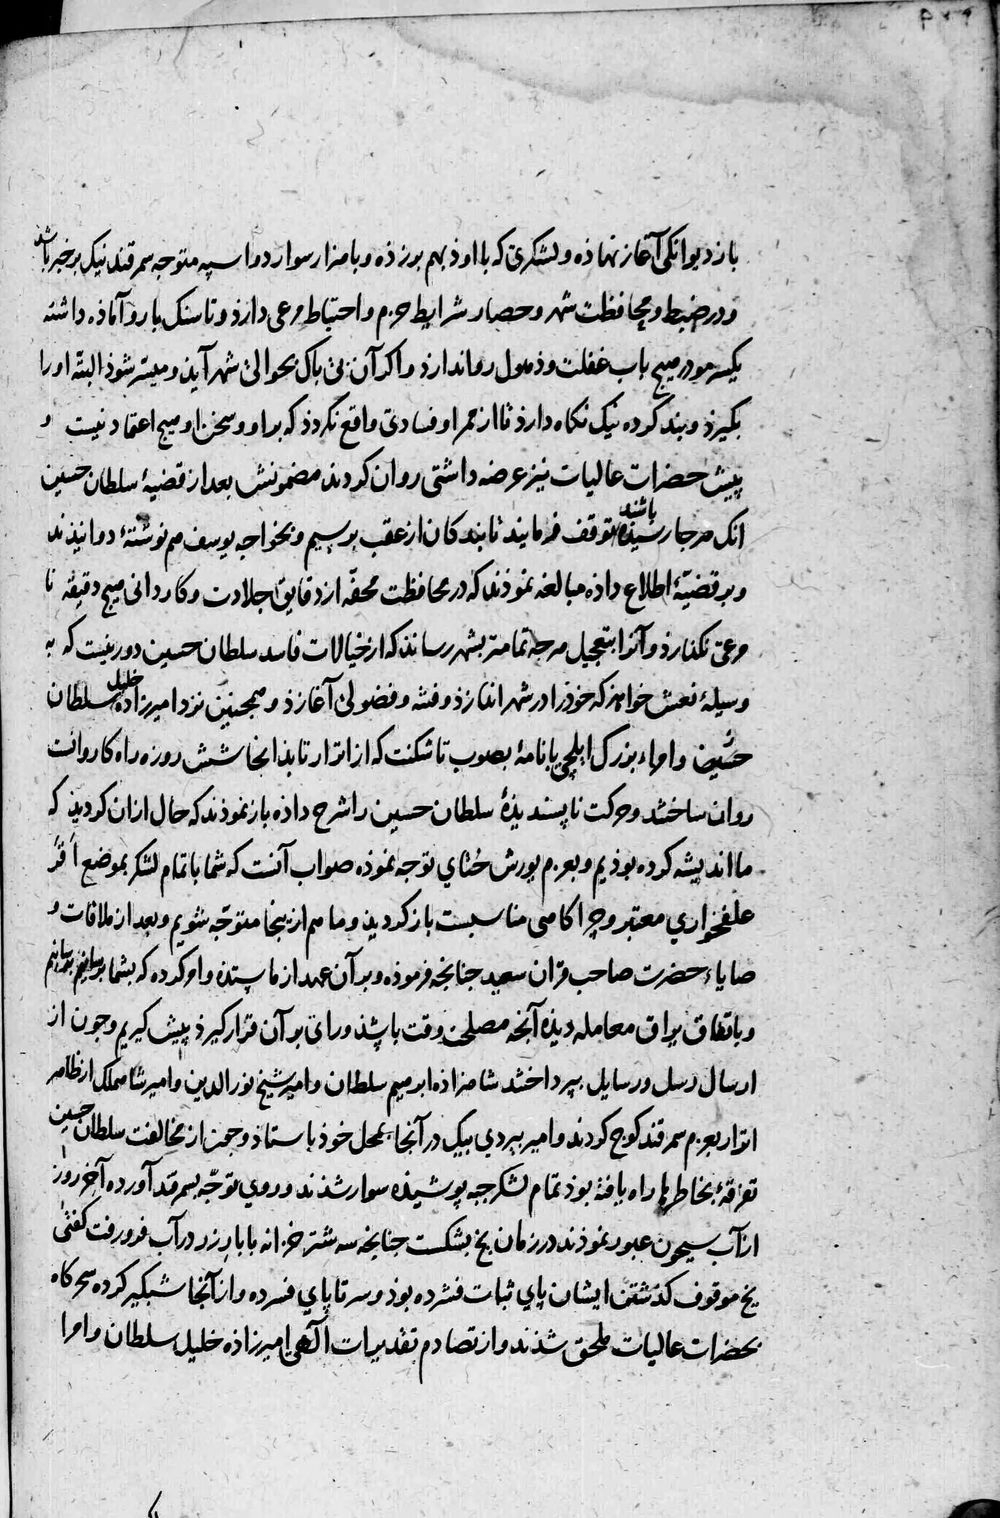 باز دیوانکی آغاز نهاذه و لشکری که با او ذ بهم بورزذه و با هزار سوار دو اسپه متوجه سمرقند نیک برخبر باشد
و در ضبط و محافظت شهر و حصار شرایط حزم و احتیاط مرعی دارذ و تا سنک بارو آماذه داشته
یکسر مو در هیچ باب غفلت و ذهول روا ندارذ و اکر آن بی باک بحوالئ شهر آیذ و میسر شوذ البتّه او را
بکیرذ و بند کرده نیک نکاه دارذ تا از ممر او فسادی واقع نکردذ که بر او و سخن او هیچ اعتماد نیست و
پیش حضرات عالیات نیز عرضه داشتی روان کردند مضمونش بعد از قضیهٔ سلطان حسین
انک هرجا رسیذه باشند توقف فرمایند تا بندکان از عقب برسیم و بخواجه یوسف هم نوشتهٔ دوانیذند
و بر قضیّهٔ اطلاع داذه مبالغه نموذند که در محافظت محفّه از دقایق جلادت و کاردانی هیچ دقیقه نا
مرعی نکذارذ و آنرا بتعجیل هرچه تمامتر بشهر رساند که از خیالات فاسد سلطان حسین دور نیست که به
وسیلهٔ نعش خواهر که خوذ را در شهر اندازذ و فتنه و فضولئ آغازذ و همچنین نزد امیرزاده خلیل سلطان
حسین و امراء بزرک ایلچی با نامهٔ بصوب تاشکنت که از اترار تا بذانجا شش روزه راه کاروانست
روان ساختند و حرکت ناپسندیذهٔ سلطان حسین را شرح داذه باز نموذند که حال ازان کردیذ که
ما اندیشه کرده بوذیم و بعزم یورش ختای توجه نموذه صواب آنست که شما با تمام لشکر بموضع اقر
علفخواری معتبر و چراکاهی مناسبست باز کردیذ و ما هم از ینجا متوجّه شویم و بعد از ملاقات و
صایاء حضرت صاحب قران سعید جنانجه فرموذه و بر آن عهد از ما ستده و امر کرده که بشما رسانیم برسانیم
و باتفاق یراق معامله دیذه آنجه مصلحت وقت باشد و رای بر آن قرار کیرذ پیش کیریم و جون از
ارسال رسل و رسایل بپرداختند شاهزاذه ابرهیم سلطان و امیر شیخ نورالدین و امیر شاهملک از ظاهر
اترار بعزم سمرقند کوج کردند و امیر بیردی بیک در آنجا بمحل خوذ باستاذ و جون از مخالفت سلطان حسین
تفرقهٔ بخاطرها راه یافته بوذ تمام لشکر جبه پوشیذه سوار شذند و روی توجّه بسمرقند آورده آخر روز
از آب سیحون عبور نموذند در زمان یخ بشکست جنانجه سه شتر خزانه با بار زر در آب فرو رفت کفتئ
یخ موقوف کذشتن ایشان پای ثبات فشرده بوذ و سر تا پای فسرده و از آنجا شبکیر کرده سحرکاه
بحضرات عالیات ملحق شذند و از تصادم تقدیرات الٓهی امیرزاذه خلیل سلطان و امرا